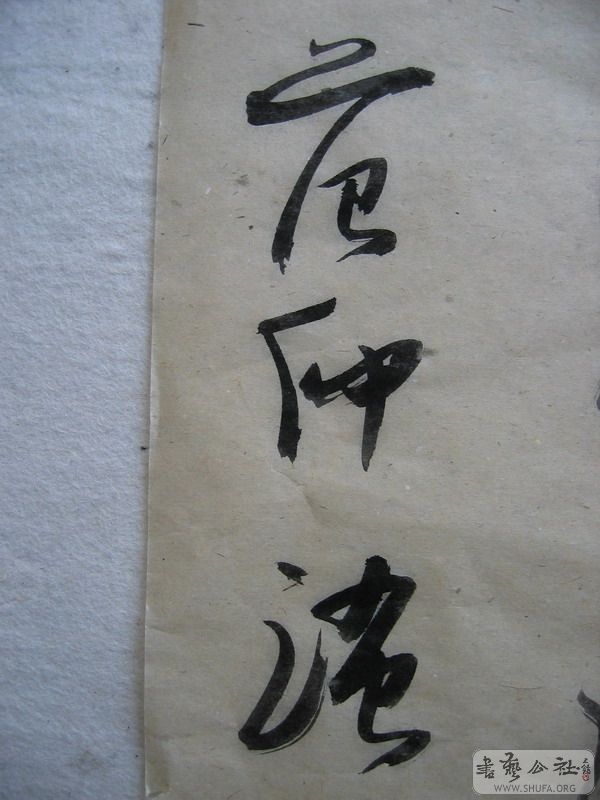 范仲淹
書藝公社
WWW.SHUFA.ORG